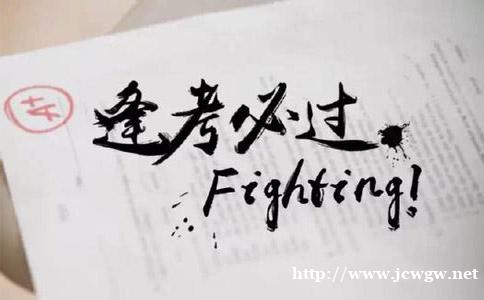 A+
逢考必过
Fighting!
http://www.jcwgw.net